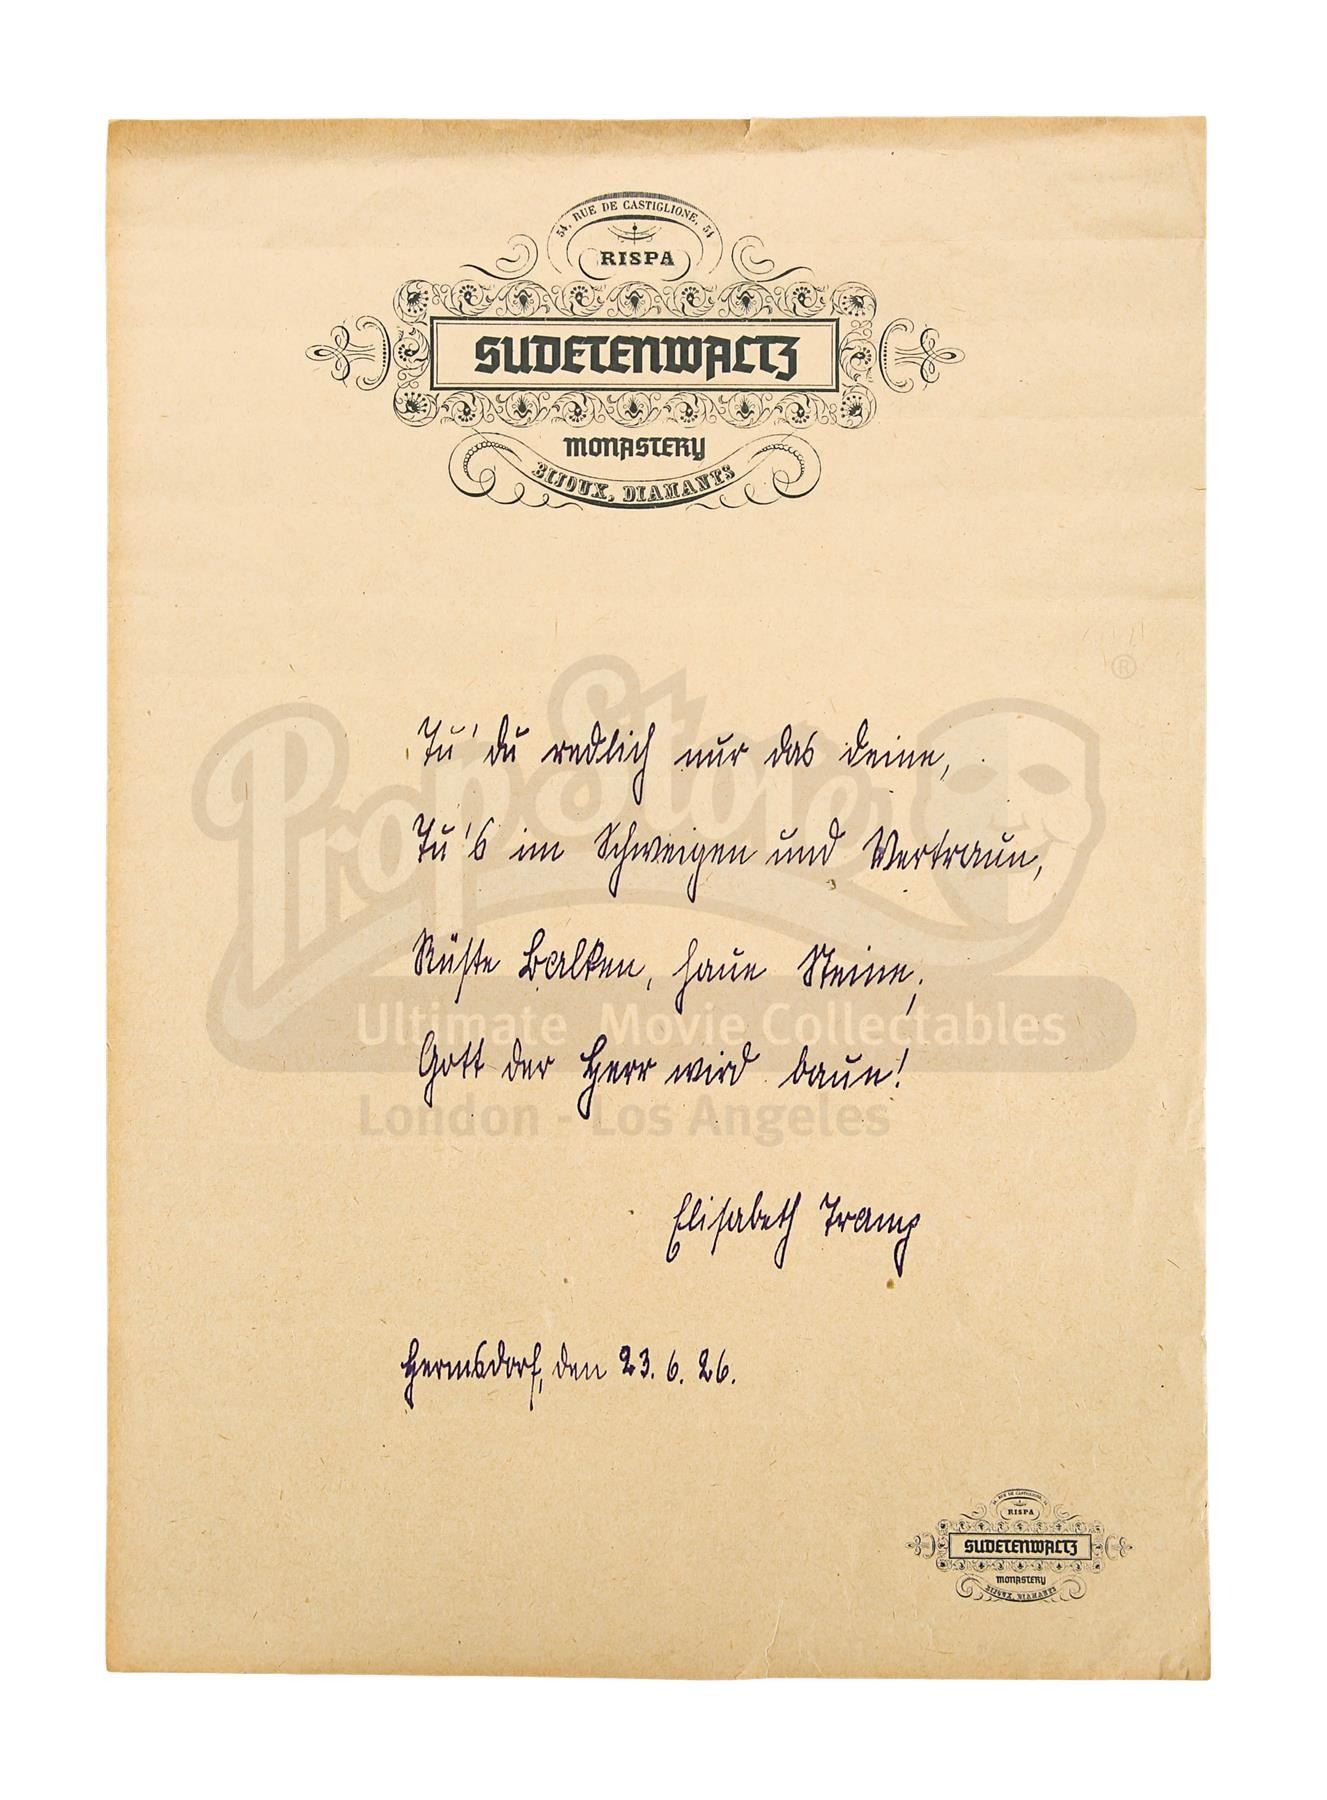 54, RUE DE CASTIGLIONE, 54
RISPA
SUDETENWALTZ
MONASTERY
BIJOUX, DIAMANTS
®
Tu' du redlich nur das deine,
Tu's im Schweigen und Vertraun,
Rüste Balken, haue Steine;
Gott der Herr wird baun!
Elisabeth Tramp
Hermsdorf, den 23. 6. 26.
PropStore
Ultimate Movie Collectables
London - Los Angeles
54, RUE DE CASTIGLIONE, 54
RISPA
SUDETENWALTZ
MONASTERY
BIJOUX, DIAMANTS